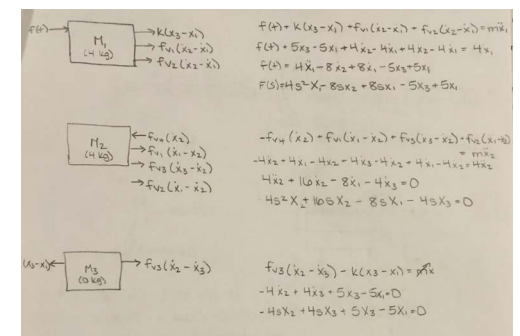 f(t)→ M₁ (4 kg) →k(x₃-x₁)
→fv₁(ẋ₂-ẋ₁)
→fv₂(ẋ₂-ẋ₁)
f(t) + k(x₃-x₁) + fv₁(ẋ₂-ẋ₁) + fv₂(ẋ₂-ẋ₁) = mẍ₁
f(t) + 5x₃ - 5x₁ + 4ẋ₂ - 4ẋ₁ + 4ẋ₂ - 4ẋ₁ = 4ẍ₁
f(t) = 4ẍ₁ - 8ẋ₂ + 8ẋ₁ - 5x₃ + 5x₁
F(s) = 4s²X₁ - 8sX₂ + 8sX₁ - 5X₃ + 5X₁
M₂ (4 kg) ←fv₄(ẋ₂)
→fv₁(ẋ₁-ẋ₂)
→fv₃(ẋ₃-ẋ₂)
→fv₂(ẋ₁-ẋ₂)
-fv₄(ẋ₂) + fv₁(ẋ₁-ẋ₂) + fv₃(ẋ₃-ẋ₂) + fv₂(ẋ₁-ẋ₂)
= mẍ₂
-4ẋ₂ + 4ẋ₁ - 4ẋ₂ - 4ẋ₃ - 4ẋ₂ + 4ẋ₁ - 4ẋ₂ = 4ẍ₂
4ẍ₂ + 16ẋ₂ - 8ẋ₁ - 4ẋ₃ = 0
4s²X₂ + 16sX₂ - 8sX₁ - 4sX₃ = 0
(x₃-x₁)← M₃ (0 kg) →fv₃(ẋ₂-ẋ₃)
fv₃(ẋ₂-ẋ₃) - k(x₃-x₁) = mẍ
-4ẋ₂ + 4ẋ₃ + 5x₃ - 5x₁ = 0
-4sX₂ + 4sX₃ + 5X₃ - 5X₁ = 0